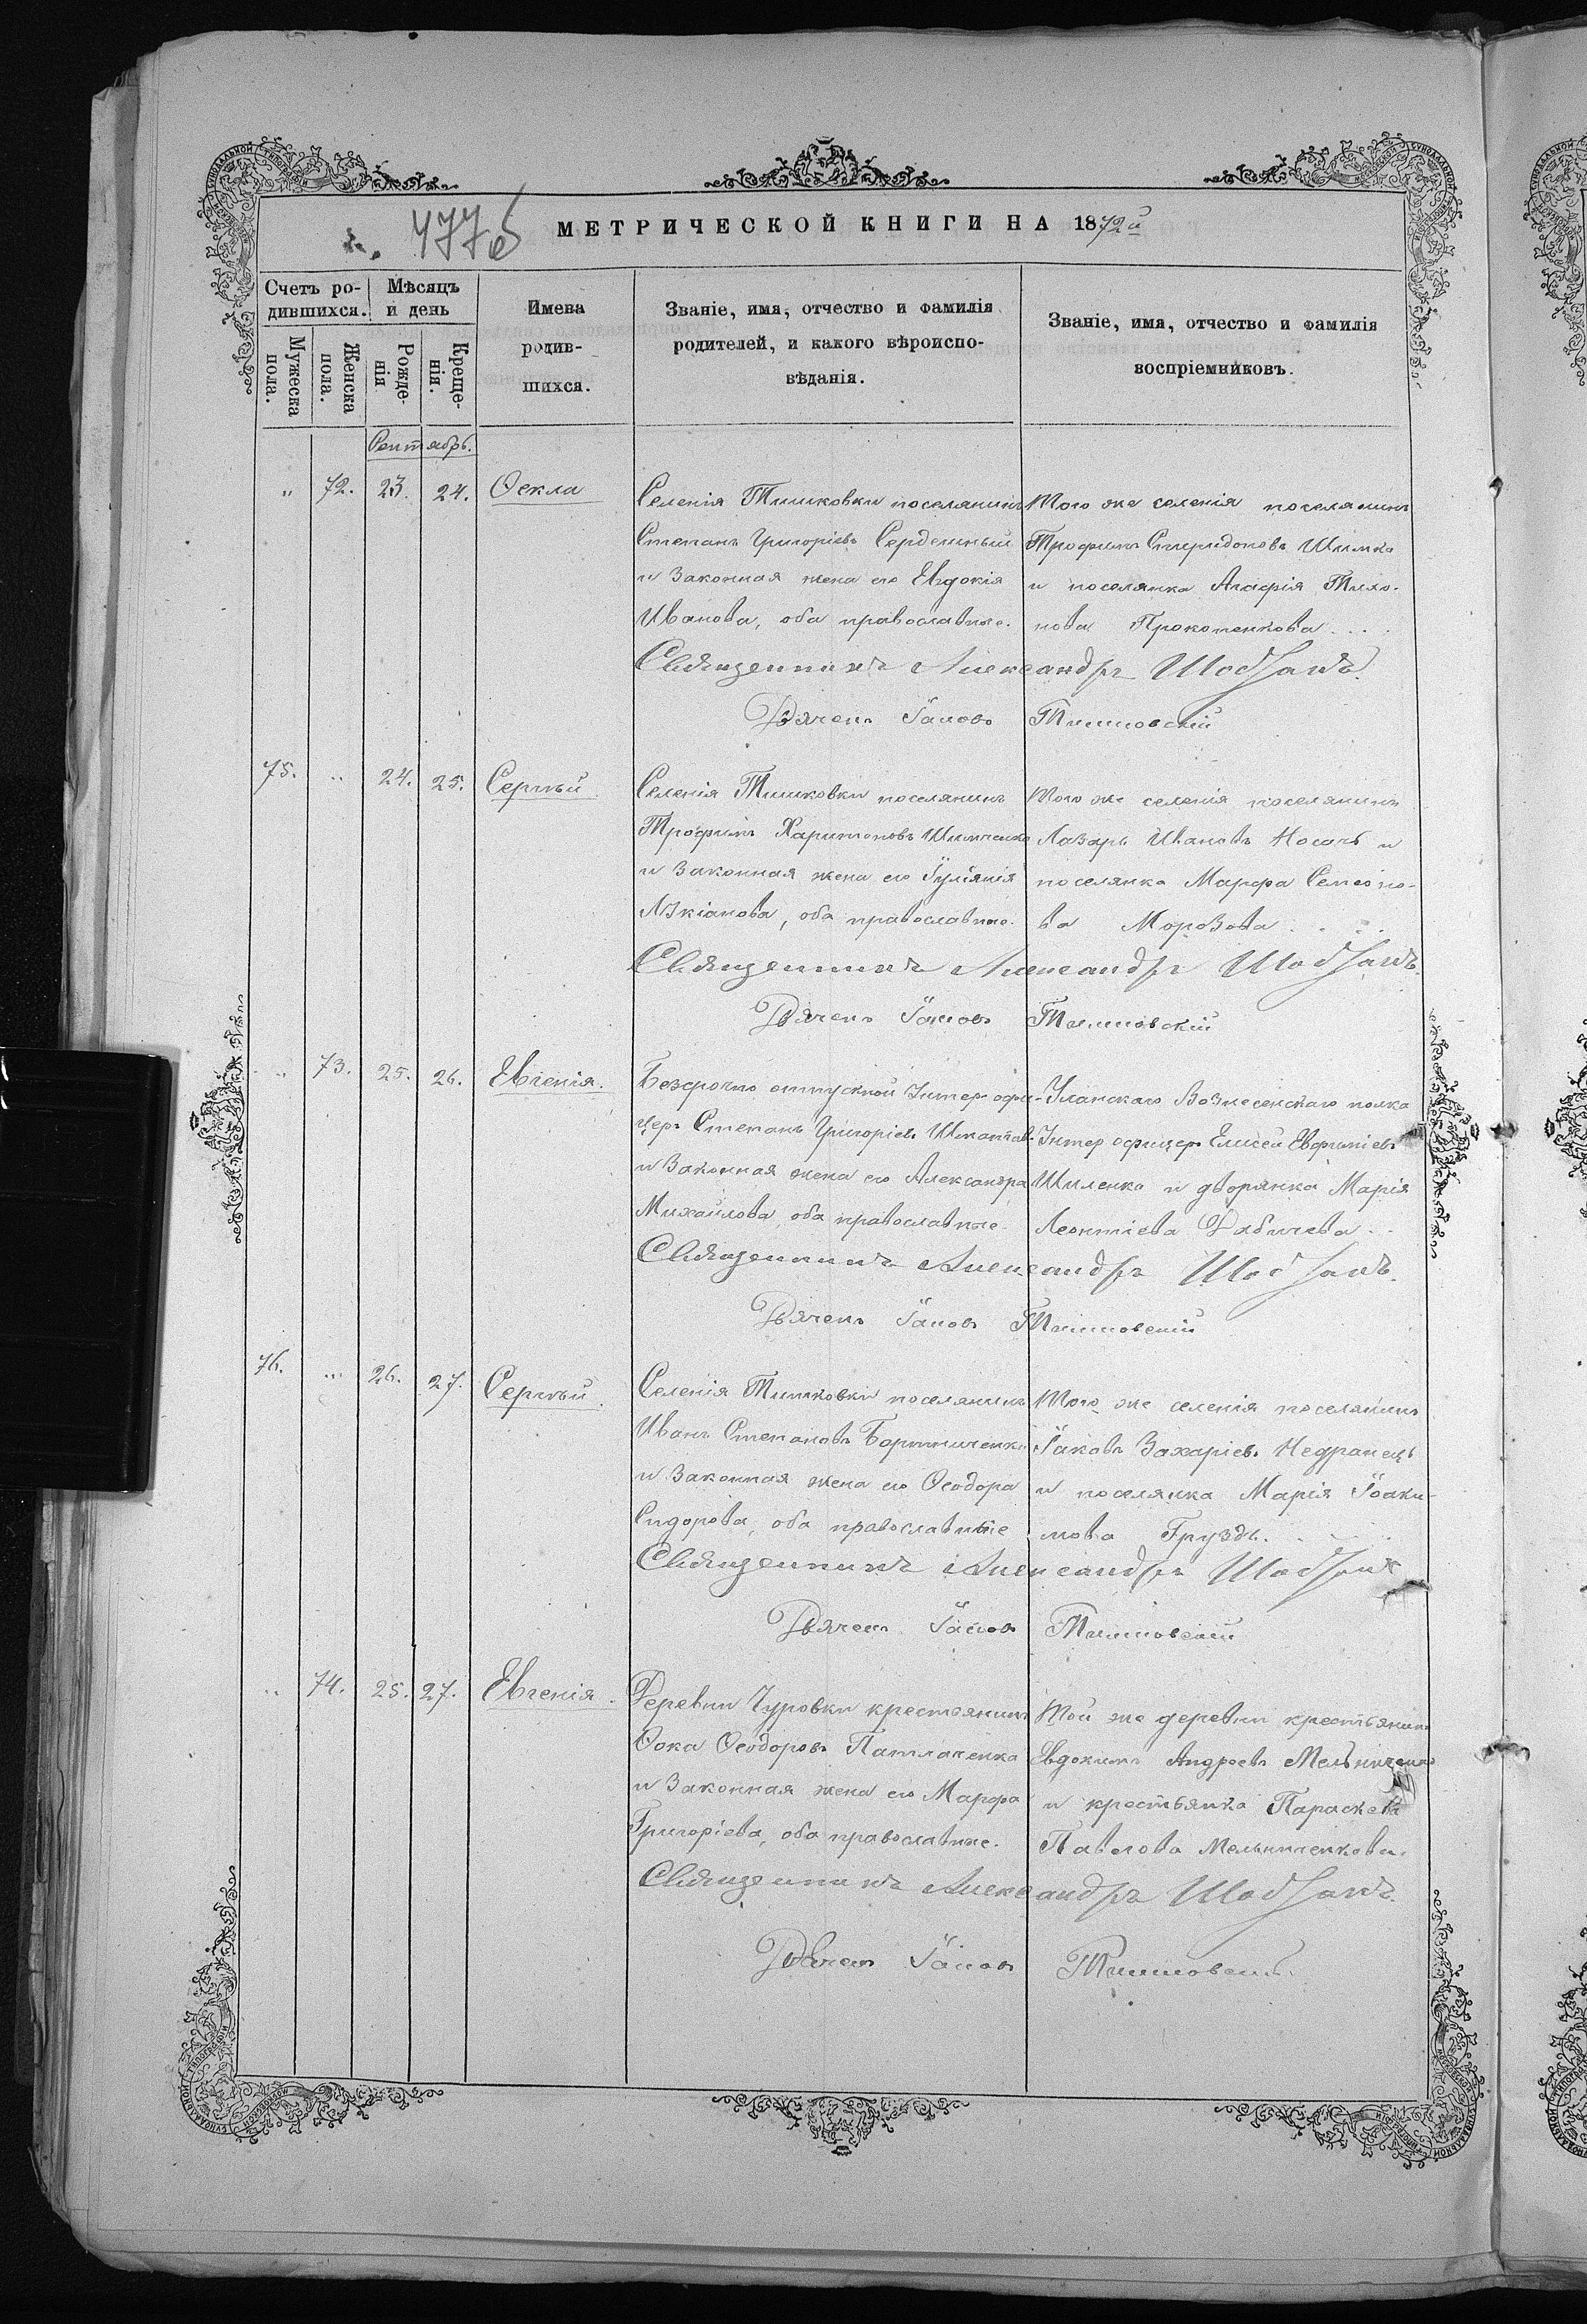 477б
МЕТРИЧЕСКОЙ КНИГИ НА 1872й
Счетъ ро-
дившихся.
Мѣсяцъ
и день
Мужеска
пола.
Женска
пола.
Рожде-
нія
Креще-
нія.
Имена
родив-
шихся.
Званіе, имя, отчество и фамилія
родителей, и какого вѣроиспо-
вѣданія.
Званіе, имя, отчество и фамилія
воспріемниковъ.
Сентябрь.
" 72. 23. 24. Ѳекла
Селенія Тишковки поселянинъ
Стефанъ Григоріевъ Сердешный
и законная жена его Евдокія
Иванова, оба православные.
Того же селенія поселянинъ
Трофимъ Спиридоновъ Шимка
и поселянка Агафія Тихо-
нова Прокопенкова....
Священникъ Александръ
Дьячекъ Іаковъ
75. " 24. 25. Сергѣй.
Селенія Тишковки поселянинъ
Трофимъ Харитоновъ Шимченко
и законная жена его Іуліанія
Лукіанова, оба православные.
Того же селенія поселянинъ
Лазарь Ивановъ Носачъ и
поселянка Марфа Семено-
ва Морозова....
Священникъ Александръ
Дьячекъ Іаковъ
" 73. 25. 26. Евгенія.
Безсрочно отпускной Унтер-офи-
церъ Стефанъ Григоріевъ
и законная жена его Александра
Михайлова, оба православные.
Уланскаго Вознесенскаго полка
Унтер офицер Елисей Евфиміевъ
Шиленко и дворянка Марія
Леонтіева
Священникъ Александръ
Дьячекъ Іаковъ
76. " 26. 27. Сергѣй.
Селенія Тишковки поселянинъ
Иванъ Стефановъ Бортниченко
и законная жена его Ѳеодора
Сидорова, оба православные
Того же селенія поселянинъ
Іаковъ Захаріевъ Недранецъ
и поселянка Марія Іоаки-
мова Груздь.
Священникъ Александръ
Дьячекъ Іаковъ
" 74. 25. 27. Евгенія.
Деревни Чуровки крестьянинъ
Ѳока Ѳеодоровъ Патлаченко
и законная жена его Марфа
Григоріева, оба православные.
Той же деревни крестьянинъ
Евдокимъ Андреевъ Мельниченко
и крестьянка Параскева
Павлова Мельниченкова.
Священникъ Александръ
Дьячекъ Іаковъ